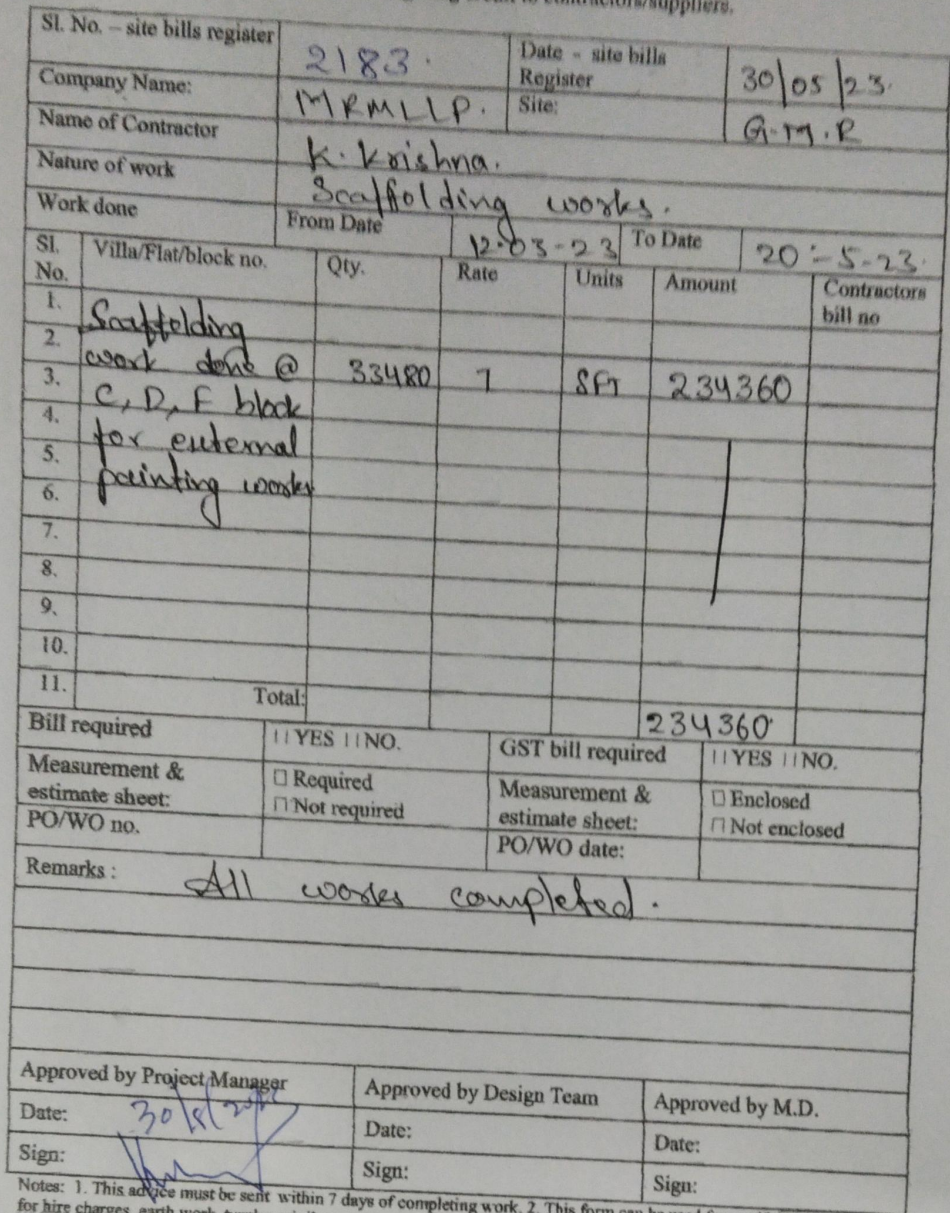 contractors/suppliers.
Sl. No. – site bills register 2183. Date - site bills Register 30/05/23.
Company Name: MRMLLP. Site: G.M.R
Name of Contractor K. Krishna.
Nature of work Scaffolding works.
Work done From Date 12-03-23 To Date 20-5-23.
Sl. No. Villa/Flat/block no. Qty. Rate Units Amount Contractors bill no
1. Scaffolding
2. work done @
3. C, D, F block 33480 7 SFT 234360
4. for external
5. painting works
6.
7.
8.
9.
10.
11.
Total: 234360
Bill required YES NO. GST bill required YES NO.
Measurement & estimate sheet: □ Required □ Not required Measurement & estimate sheet: □ Enclosed □ Not enclosed
PO/WO no. PO/WO date:
Remarks : All works completed.
Approved by Project Manager Approved by Design Team Approved by M.D.
Date: Date: Date:
Sign: Sign: Sign:
Notes: 1. This advice must be sent within 7 days of completing work. 2. This form can be
for hire charges, earth work,